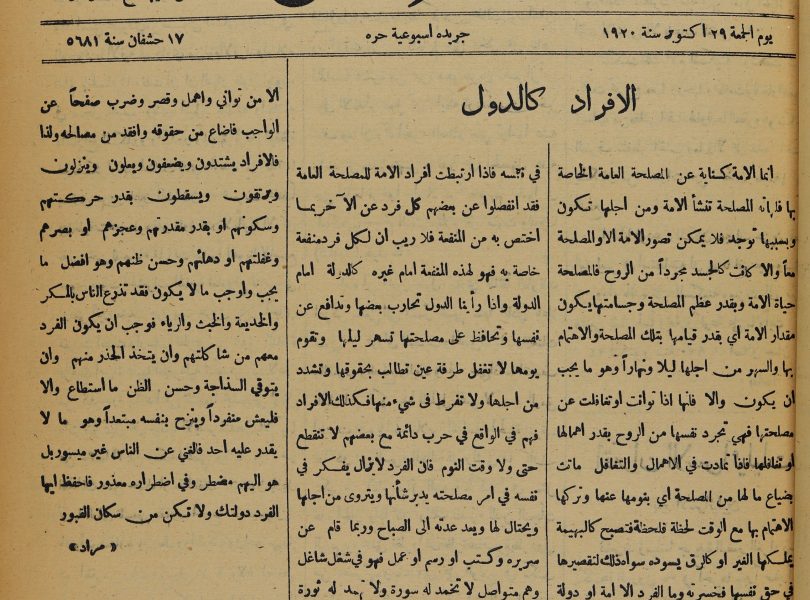 يوم الجمعة ٢٩ اكتوبر سنة ١٩٢٠
جريده اسبوعية حره
١٧ حشفان سنة ٥٦٨١
الافراد كالدول
انما الامة كناية عن المصلحة العامة الخاصة
بها فلهذه المصلحة تنشأ الامة ومن اجلها تكون
وبسببها توجد فلا يمكن تصور الامة الا والمصلحة
معاً والا كانت كالجسد مجرداً من الروح فالمصلحة
حياة الامة وبقدر عظم المصلحة وجسامتها يكون
مقدار الامة اي بقدر قيامها بتلك المصلحة والاهتمام
بها والسهر من اجلها ليلا ونهاراً وهو ما يجب
ان يكون والا فانها اذا توانت او تغافلت عن
مصلحتها فهي تجرد نفسها من الروح بقدر اهمالها
او تغافلها فاذا تمادت في الاهمال والتغافل ماتت
بضياع ما لها من المصلحة اي بنومها عنها وتركها
الاهتمام بها مع الوقت لحظة فلحظة فتصبح كالبهيمة
يملكها الغير او كالرق يسوده سواه ذلك لتقصيرها
في حق نفسها فخسرته وما الفرد الا امة او دولة
في نفسه فاذا ارتبطت افراد الامة للمصلحة العامة
فقد انفصلوا عن بعضهم كل فرد عن الآخر بما
اختص به من المنفعة فلا ريب ان لكل فرد منفعة
خاصة به فهو لهذه المنفعة امام غيره كالدولة امام
الدولة واذا رأينا الدول تحارب بعضها وتدافع عن
نفسها وتحافظ على مصلحتها تسهر ليلها وتقوم
يومها لا تغفل طرفة عين تطالب بحقوقها وتشدد
من اجلها ولا تفرط في شيء منها فكذلك الافراد
فهم في الواقع في حرب دائمة مع بعضهم لا تنقطع
حتى ولا وقت النوم فان الفرد لا يزال يفكر في
نفسه في امر مصلحته يدبر شأنها ويتروى من اجلها
ويحتال لها ويعد عدته الى الصباح وربما قام عن
سريره وكتب او رسم او عمل فهو في شغل شاغل
وهم متواصل لا تخمد له سورة ولا تهمد له ثورة
الا من تواني واهمل وقصر وضرب صفحاً عن
الواجب فضاع من حقوقه وافقد من مصالحه ولذا
فالافراد يشتدون ويضعفون ويعلون وينزلون
ويرتقون ويسقطون بقدر حركتهم
وسكونهم او بقدر مقدرتهم وعجزهم او بصرهم
وغفلتهم او دهائهم وحسن ظنهم وهو افضل ما
يجب واوجب ما لا يكون فقد تذرع الناس بالمكر
والخديعة والخبث والرياء فوجب ان يكون الفرد
معهم من شاكلتهم وان يتخذ الحذر منهم وان
يتوقي السذاجة وحسن الظن ما استطاع والا
فليعش منفرداً وينزح بنفسه مبتعداً وهو ما لا
يقدر عليه احد فالغني عن الناس غير ميسور بل
هو اليهم مضطر وفي اضطراره معذور فاحفظ ايها
الفرد دولتك ولا تكن من سكان القبور
« مراد »